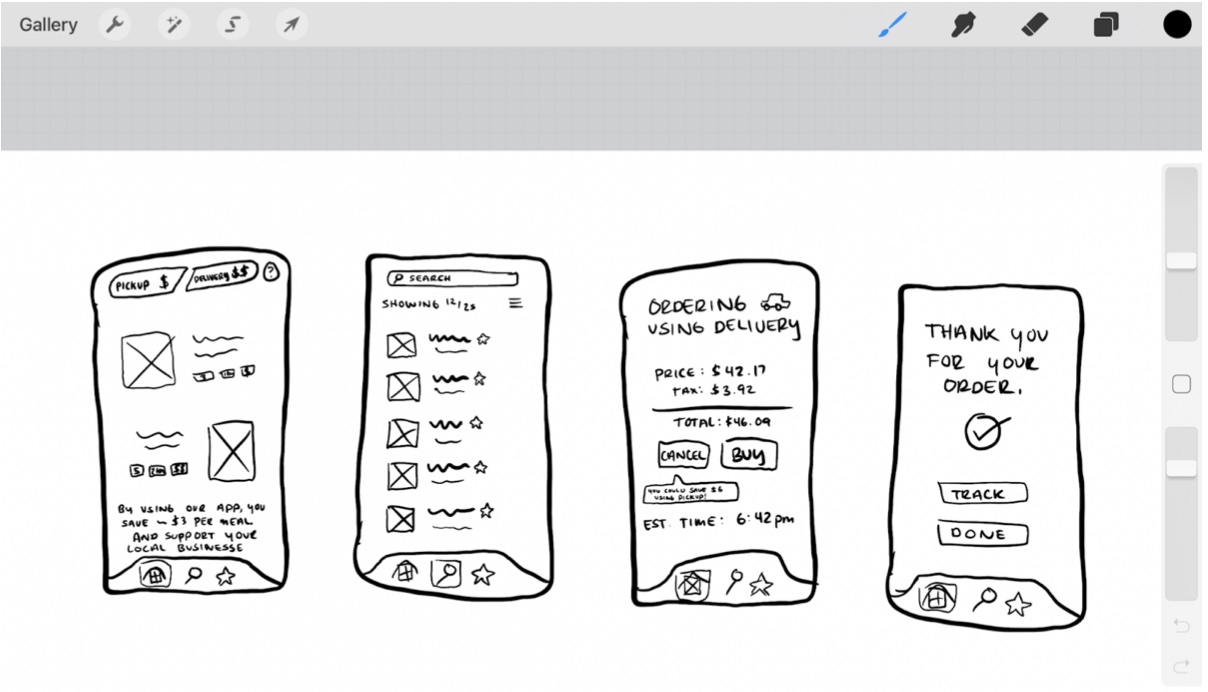 Gallery
PICKUP $
DELIVERY $$
?
BY USING OUR APP, YOU
SAVE ~ $3 PER MEAL
AND SUPPORT YOUR
LOCAL BUSINESSE
SEARCH
SHOWING 12/25
ORDERING
USING DELIVERY
PRICE: $42.17
TAX: $3.92
TOTAL: $46.09
CANCEL
BUY
YOU COULD SAVE $6
USING PICKUP!
EST. TIME: 6:42pm
THANK YOU
FOR YOUR
ORDER.
TRACK
DONE